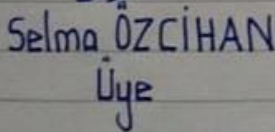 Selma ÖZCİHAN
Üye